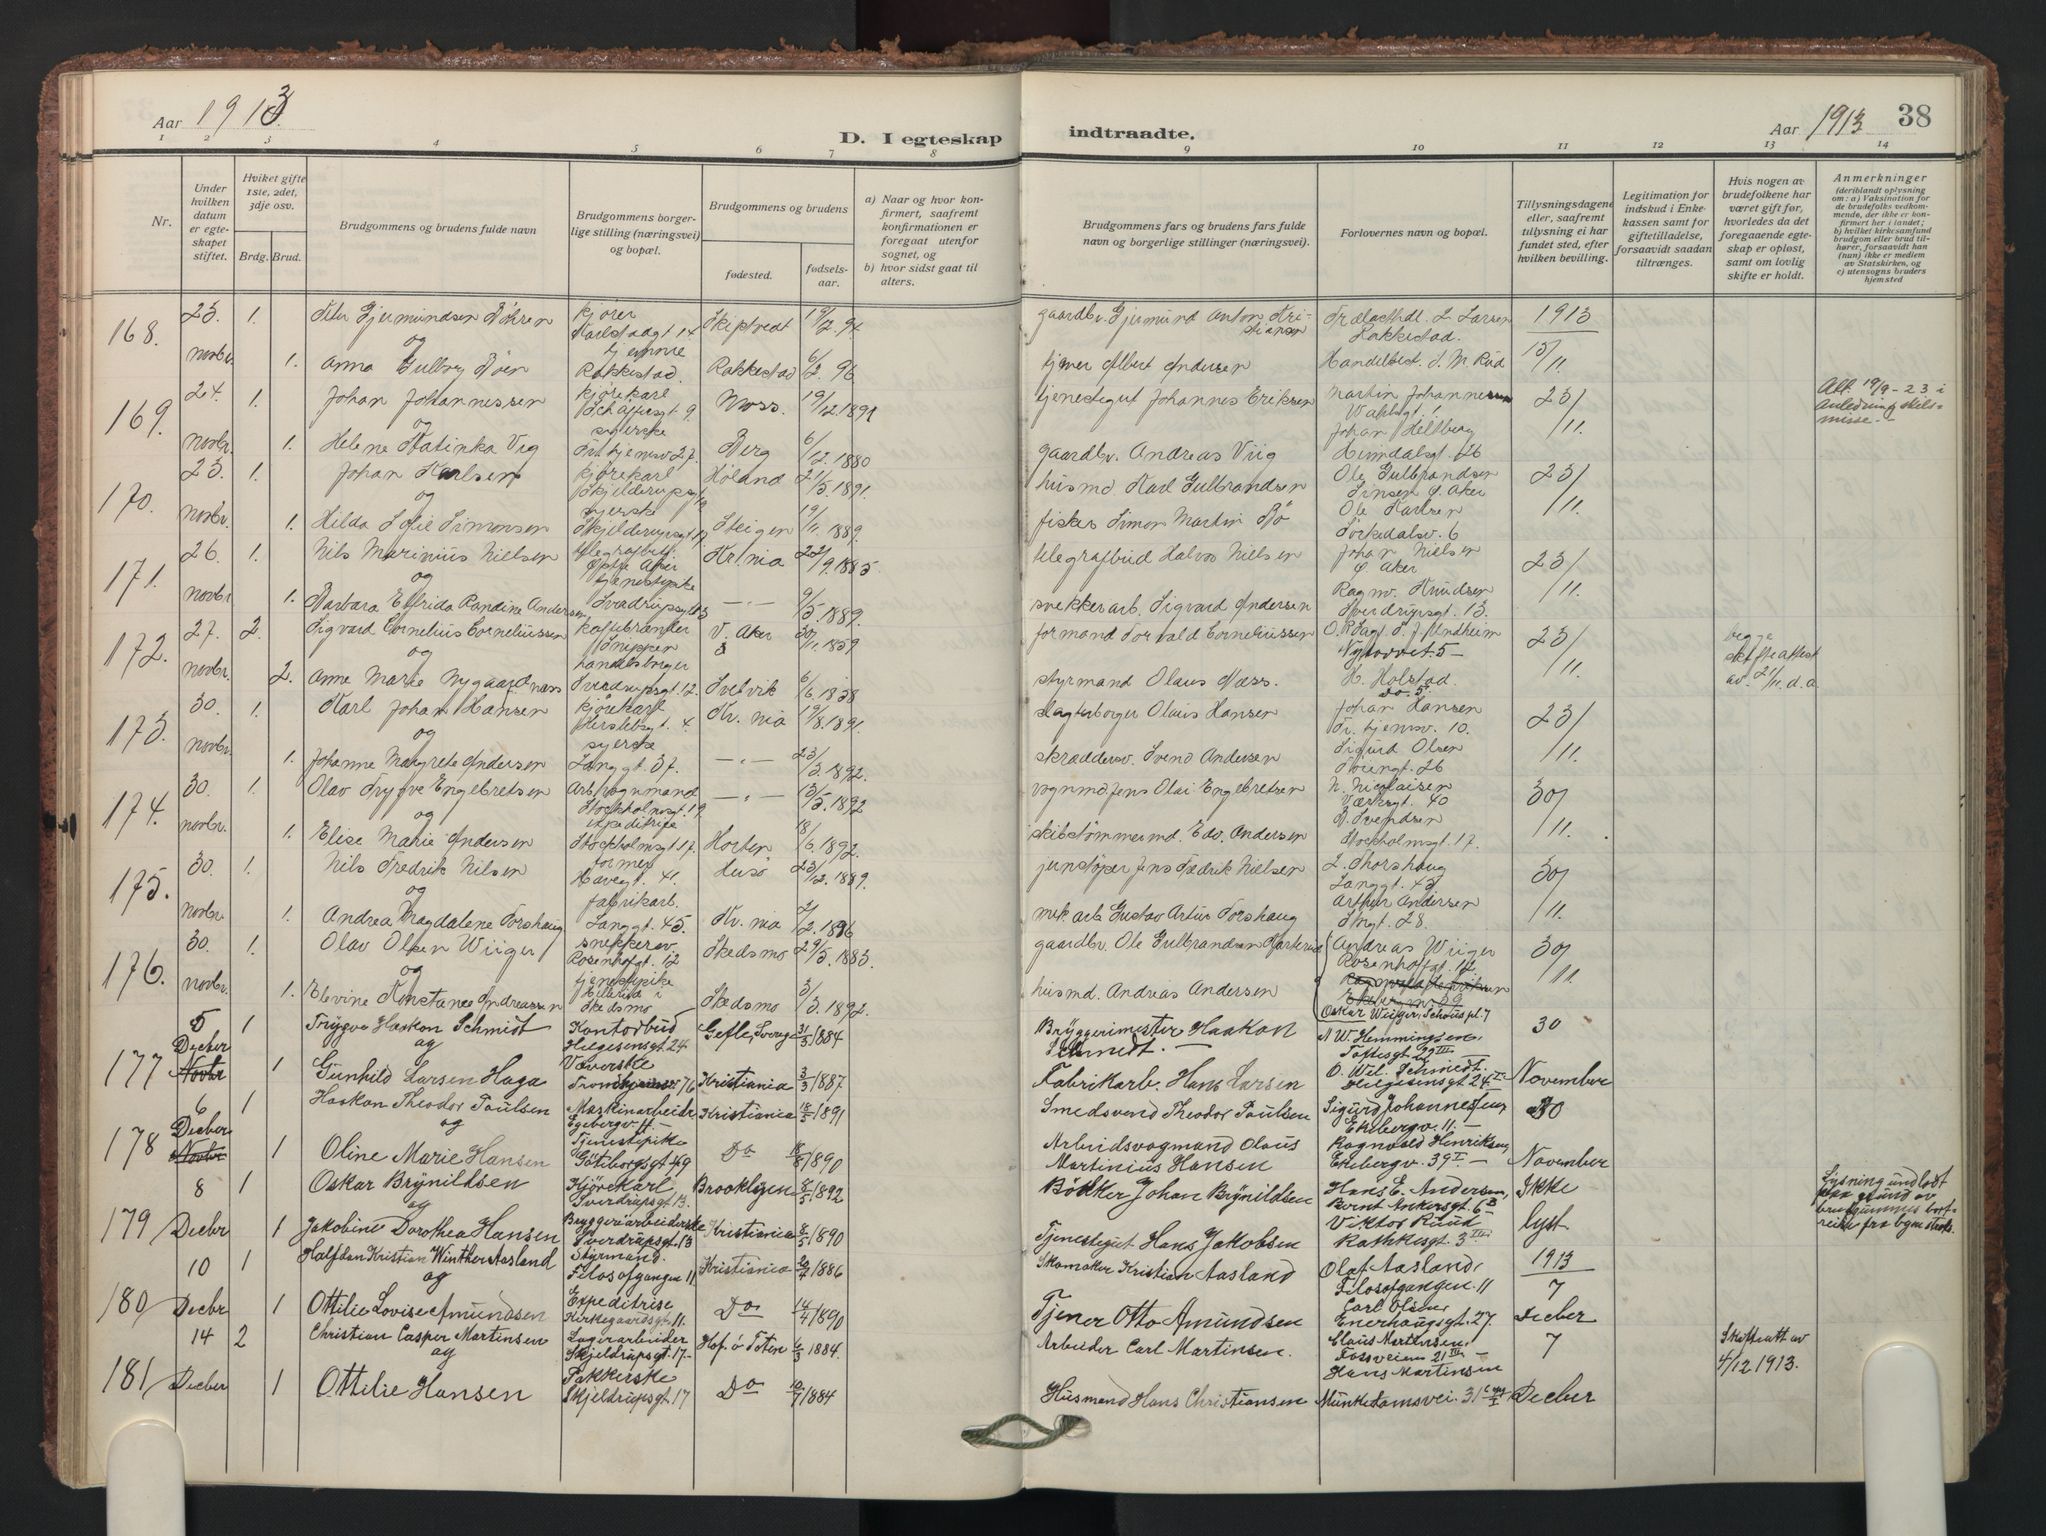 Aar 1913.
D. I egteskap
indtraadte.
Aar 1913
38
1 2 3 4 5 6 7 8 9 10 11 12 13 14
Nr.
Under hvilken datum er egteskapet stiftet.
Hviket gifte 1ste, 2det, 3dje osv.
Brdg. Brud.
Brudgommens og brudens fulde navn
Brudgommens borgerlige stilling (næringsvei) og bopæl.
Brudgommens og brudens
fødested.
fødselsaar.
a) Naar og hvor konfirmert, saafremt konfirmationen er foregaat utenfor sognet, og
b) hvor sidst gaat til alters.
Brudgommens fars og brudens fars fulde navn og borgerlige stillinger (næringsvei).
Forlovernes navn og bopæl.
Tillysningsdagene eller, saafremt tillysning ei har fundet sted, efter hvilken bevilling.
Legitimation for indskud i Enkekassen samt for giftetilladelse, forsaavidt saadan tiltrænges.
Hvis nogen av brudefolkene har været gift før, hvorledes da det foregaaende egteskap er opløst, samt om lovlig skifte er holdt.
Anmerkninger
(deriblandt oplysning om: a) Vaksination for de brudefolks vedkommende, der ikke er konfirmert her i landet; b) hvilket kirkesamfund brudgom eller brud tilhører, forsaavidt han (hun) ikke er medlem av Statskirken, og c) utensogns bruders hjemsted
168. 23. novbr. 1. Gjermundsen
og
kjører
Skiptvedt 19/2 94
gaardbr. Gjermund Anton Kristiansen
L. Larsen Rakkestad.
1913
1. Anna Gulbr.
tjenne Rakkestad.
Rakkestad 6/2. 96
tjener Albert Andersen
Handelsbest. M. Rud
15/11.
169. 24. novbr. 1. Johan Johannessen
og
kjørekarl
Schaffersgt 9.
Moss. 19/12 1891
tjenestegut Johannes Eriksen
Martin Johannessen
Vahlsgt. 1.
23/11.
Att 19/9-23 i
Anledning skilsmisse.-
1. Helene Katinka Vig
syerske
Berg 6/12. 1880
gaardbr. Andreas Viig
Johan Heltberg
Heimdalsgt. 26
170. 23. novbr. 1. Johan Karlsen
og
kjørekarl
Skjelderupsgt
Høland 21/5. 1891.
husmd. Karl Gulbrandsen
Ole Gulbrandsen
Sinsen Ø. Aker
23/11.
1. Hilda Sofie Simonsen
syerske
Skjelderupsgt
Steigen 19/11. 1889.
fisker Simon Martin Bø
Ole Karlsen
Sørkedalsv. 6
171. 26. novbr. 1. Nils Marinius Nielsen
og
telegrafbet.
Østre Aker
Kr.nia 22/9. 1885.
telegrafbud Halvor Nielsen
Johan Nielsen
Ø. Aker
23/11.
1. Barbara Elfrida Randine Andersen
tjenestepike
-"- 9/5. 1889.
snekkerarb. Sigvard Andersen
Ragnv. Knudsen
Sverdrupsgt. 13.
172. 27. novbr. 2. Sigvard Cornelius Corneliussen
og
kaffebrænder
V. Aker 30/11. 1859
formand Torvald Corneliussen
Nytorvet 5-
23/11.
begge
skifteattest
av 21/11. d.a.
2. Anne Marie Nygaard Næss
handelsborger
Sverdrupsgt. 12.
Svelvik 6/6 1858
styrmand Olaus Næss.
H. Holstad.
do. 5.
173. 30. novbr. 1. Karl Johan Hansen
og
kjørekarl
Herslebsgt. 4
Kr.nia 19/8. 1891.
slagterborger Olaus Hansen
Johan Hansen
Tr.hjemsv. 10.
23/11.
1. Johanne Margrete Andersen
syerske
Langgt. 37.
-"- 23/3. 1892.
skræddersv. Svend Andersen
Sigurd Olsen
Tøiengt. 26
174. 30. novbr. 1. Olav Trygve Engebretsen
og
Arb. vognmand
Stockholmsgt. 19
-"- 13/5. 1892
vognmd Jens Olai Engebretsen
N. Nicolaisen
Værksgt. 40
30/11.
1. Elise Marie Andersen
expeditrise
Stockholmsgt. 17.
Horten 18/6. 1892.
skibstømmermd. Edv. Andersen
Svendsen
Stockholmsgt. 17.
175. 30. novbr. 1. Nils Fredrik Nilsen
og
former
Havegt. 41.
Husø 23/12. 1889.
jernstøper Jens Fredrik Nielsen
L. Thorshaug
Langgt. 45
30/11.
1. Andrea Magdalene Torshaug
fabrikarb.
Langgt. 45.
Kr.nia 2/2. 1896
mek arb Gustav Artur Torshaug
Arthur Andersen
28.
176. 30. novbr. 1. Olav Olsen Wiiger
og
snekkersv.
Rosenhofgt. 12
Skedsmo 29/5. 1883.
gaardbr. Ole Gulbrandsen
Andreas Wiiger
Rosenhoffgt. 12.
30/11.
1. Elevine Konstance Andreassen
tjenestepike
Skedsmo
Skedsmo 3/3. 1892.
husmd. Andreas Andersen
Oskar Wiiger, Schous pl. 7
177 5 Decbr Novbr 1 Trygve Haakon Schmidt
og
Kontorbud
Helgesensgt. 24
Gefle, Sverge 31/5 1884
Bryggerimester Haakon
Schmidt.-
A W. Hemmingsen,
Toftesgt. 29 III
30 November
1 Gunhild Larsen Haga
Væverske
76
Kristiania 3/3 1887
Fabrikarb. Hans Larsen
O. Wel. Schmidt.
Helgesensgt. 24
178 6 Decbr Novbr 1 Haakon Theodor Poulsen
og
Maskinarbeider
Egebergv. 11-
Kristiania 18/5 1891
Smedsvend Theodor Poulsen
Sigurd Johannessen,
Ekebergv. 11.-
30 November
1 Oline Marie Hansen
Tjenestepike
Göteborgsgt 49
Do 16/8 1890
Arbeidsvogmand Olaus
Martinius Hansen
Ragnvald Henriksen,
Ekebergv. 39 I.-
179 8 Decbr 1 Oskar Brynildsen
og
Kjørekarl
Sverdrupsgt. 13.
Brooklyen 8/5 1892
Bödker Johan Brynildsen
Hans E. Andersen,
Bernt Ankersgt. 6 B
Ikke lyst
Lysning undladt
paa grund av
brudgommens bortreise fra byen straks.
1 Jakobine Dorothea Hansen
Bryggeriarbeiderske
Sverdrupsgt. 13
Kristiania 8/5 1890
Tjenestegut Hans Jakobsen
Viktor Ruud
Rathkesgt. 3 III
180 10 Decbr 1 Halfdan Kristian Winther Aasland
og
Styrmand.
Filosofgangen 11
Kristiania 20/7 1886
Skomaker Kristian Aasland
Olaf Aasland,
Filosofgangen. 11
1913
7 Decber
1 Ottilie Lovise Amundsen
Expeditrise
Kirkegaardsgt. 11.
Do 14/4 1890
Tjener Otto Amundsen
Carl Olsen,
Enerhaugsgt. 27.
181 14 Decbr 2 Christian Casper Martinsen
og
Lagerarbeider
Skjeldrupsgt. 17-
Hof. ö Toten 6/3 1884.
Arbeider Carl Martinsen.
Claus Martinsen,
Fossveien 21 III-
7 Decber
Skifteatt av
4/12 1913.
1 Ottilie Hansen
Pakkerske
Skjeldrupsgt. 17
Do 10/7 1884
Husmand Hans Christiansen
Hans Martinsen
Munkedamsvei. 31